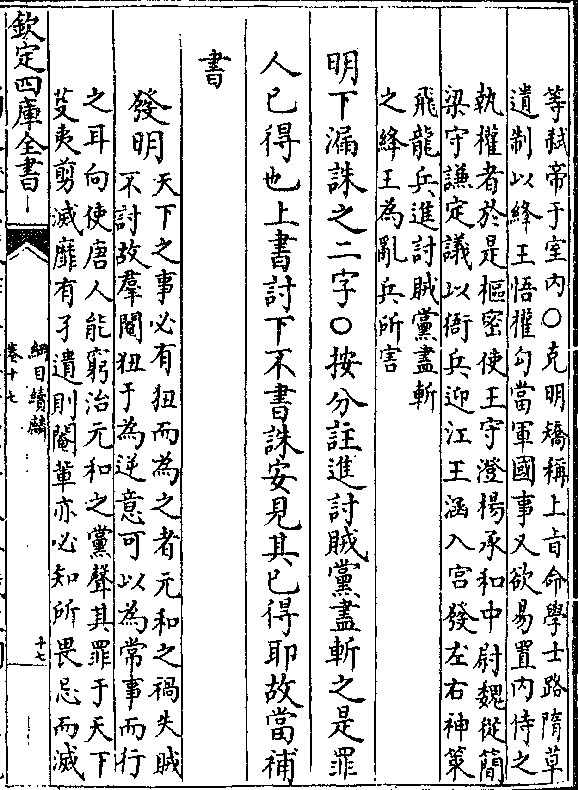 等弒帝于室内〇克明矯稱上旨命學士路隋草
遺制以絳王悟權勾當軍國事又欲易置内侍之
執權者於是樞密使王守澄楊承和中尉魏從簡
梁守謙定議以衙兵迎江王涵入宫發左右神策
飛龍兵進討賊黨盡斬
之絳王為亂兵所害
明下漏誅之二字〇按分註進討賊黨盡斬之是罪
人已得也上書討下不書誅安見其已得耶故當補
書
發明
天下之事必有狃而為之者元和之禍失賊
不討故羣閹狃于為逆意可以為常事而行
之耳向使唐人能窮治元和之黨聲其罪于天下
芟夷剪滅靡有孑遺則閹輩亦必知所畏忌而滅
欽定四庫全書
綱目續麟
卷十七
十七